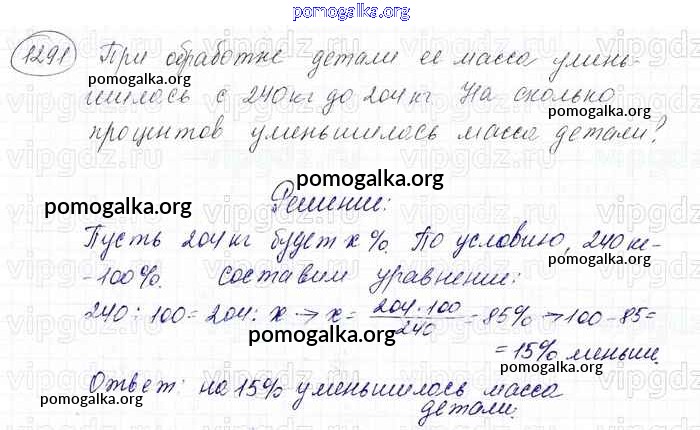 pomogalka.org
1291 При обработке детали ее масса умень-
шилась с 240 кг до 204 кг На сколько
процентов уменьшилась масса детали?
Решение:
Пусть 204 кг будет x %. По условию, 240 кг-
-100%. составим уравнение:
240 : 100 = 204 : x → x = 204 · 100 / 240 = 85% → 100 - 85 =
= 15% меньше.
Ответ: на 15% уменьшилось масса
детали.
pomogalka.org
pomogalka.org
pomogalka.org
pomogalka.org
pomogalka.org
pomogalka.org
pomogalka.org
pomogalka.org
pomogalka.org